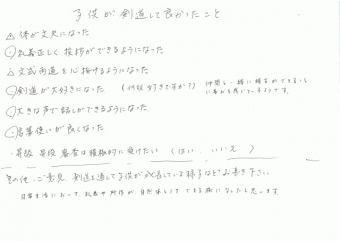 子供が剣道して良かったこと
△体が丈夫になった
○礼義正しく挨拶ができるようになった
△文武両道を心掛けるようになった
○剣道が大好きになった (何故好きですか?) 仲間と一緒に稽古ができること
○大きな声で話しができるようになった
○言葉使いが良くなった
・昇級 昇段 審査は積極的に受けたい (はい いいえ)
その他、ご意見 剣道を通して子供が成長している様子などお書き下さい。
日常生活において、礼義や所作が、自然体としてできる様になったと思います。